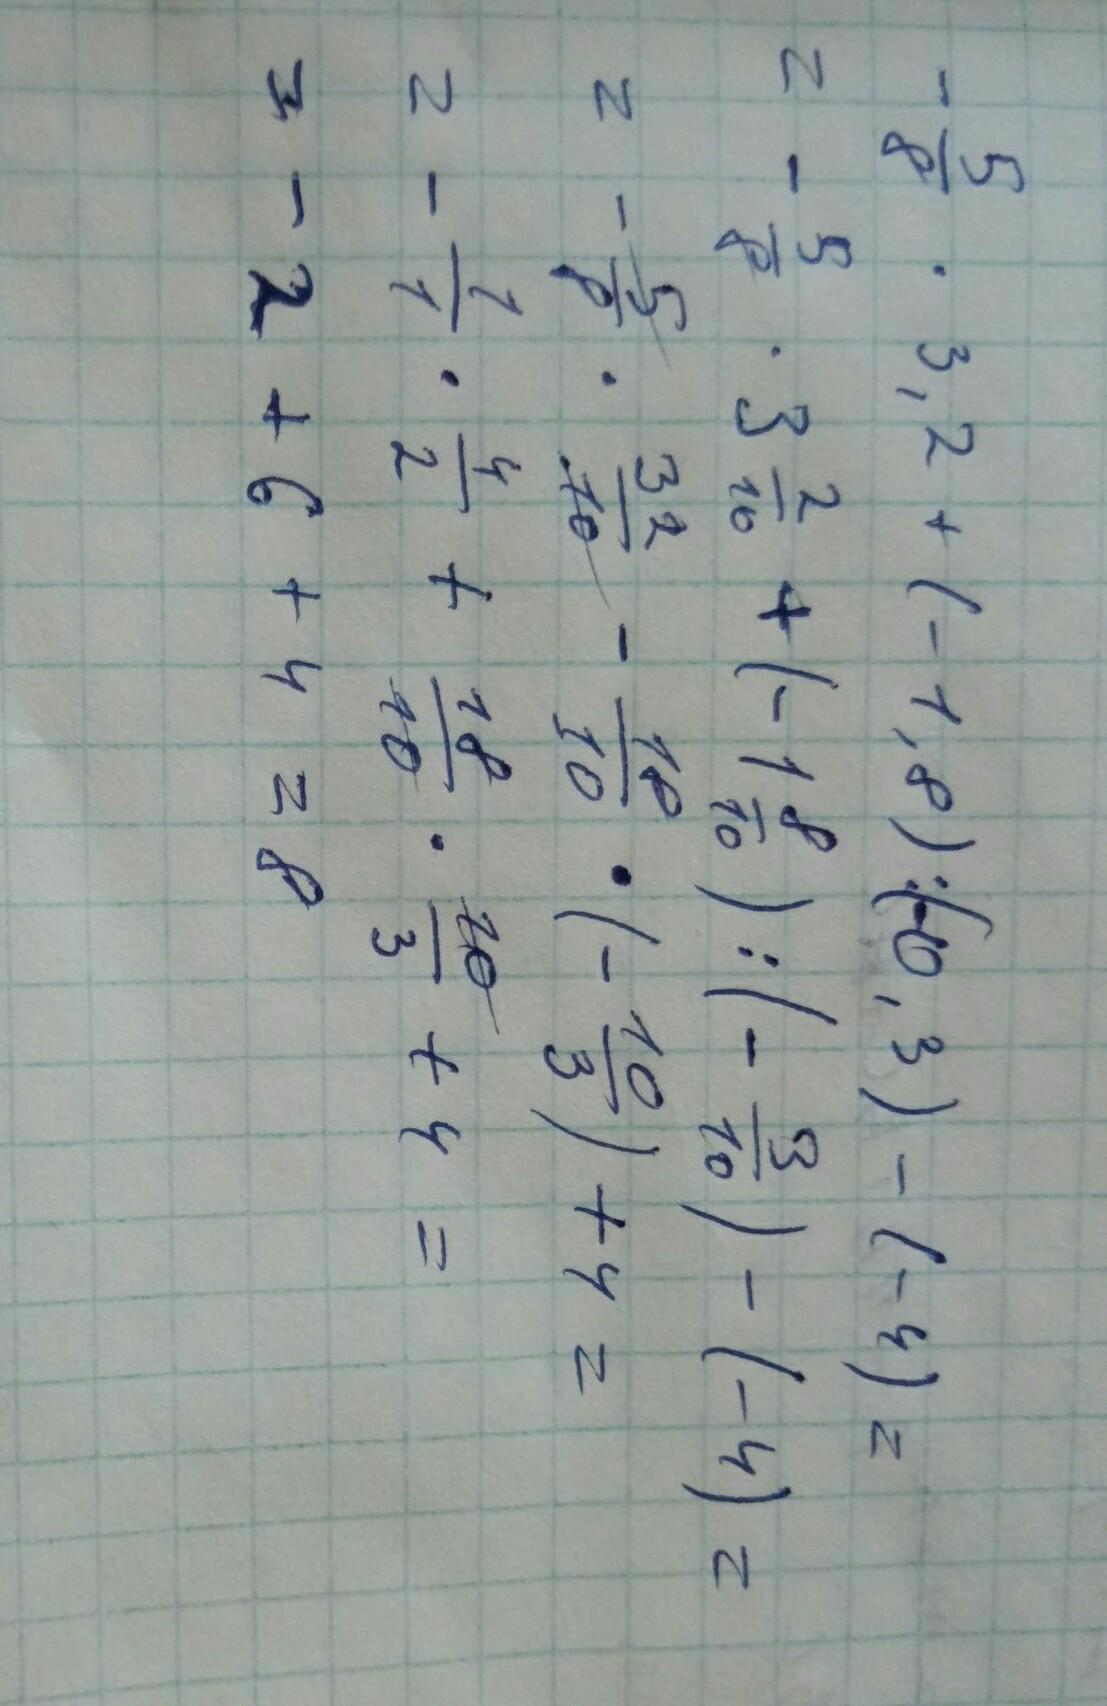 - 5/8 · 3,2 + (-1,8) : (-0,3) - (-4) =
= - 5/8 · 3 2/10 + (-1 8/10) : (- 3/10) - (-4) =
= - 5/8 · 32/10 - 18/10 · (- 10/3) + 4 =
= - 1/1 · 4/2 + 18/10 · 10/3 + 4 =
= - 2 + 6 + 4 = 8